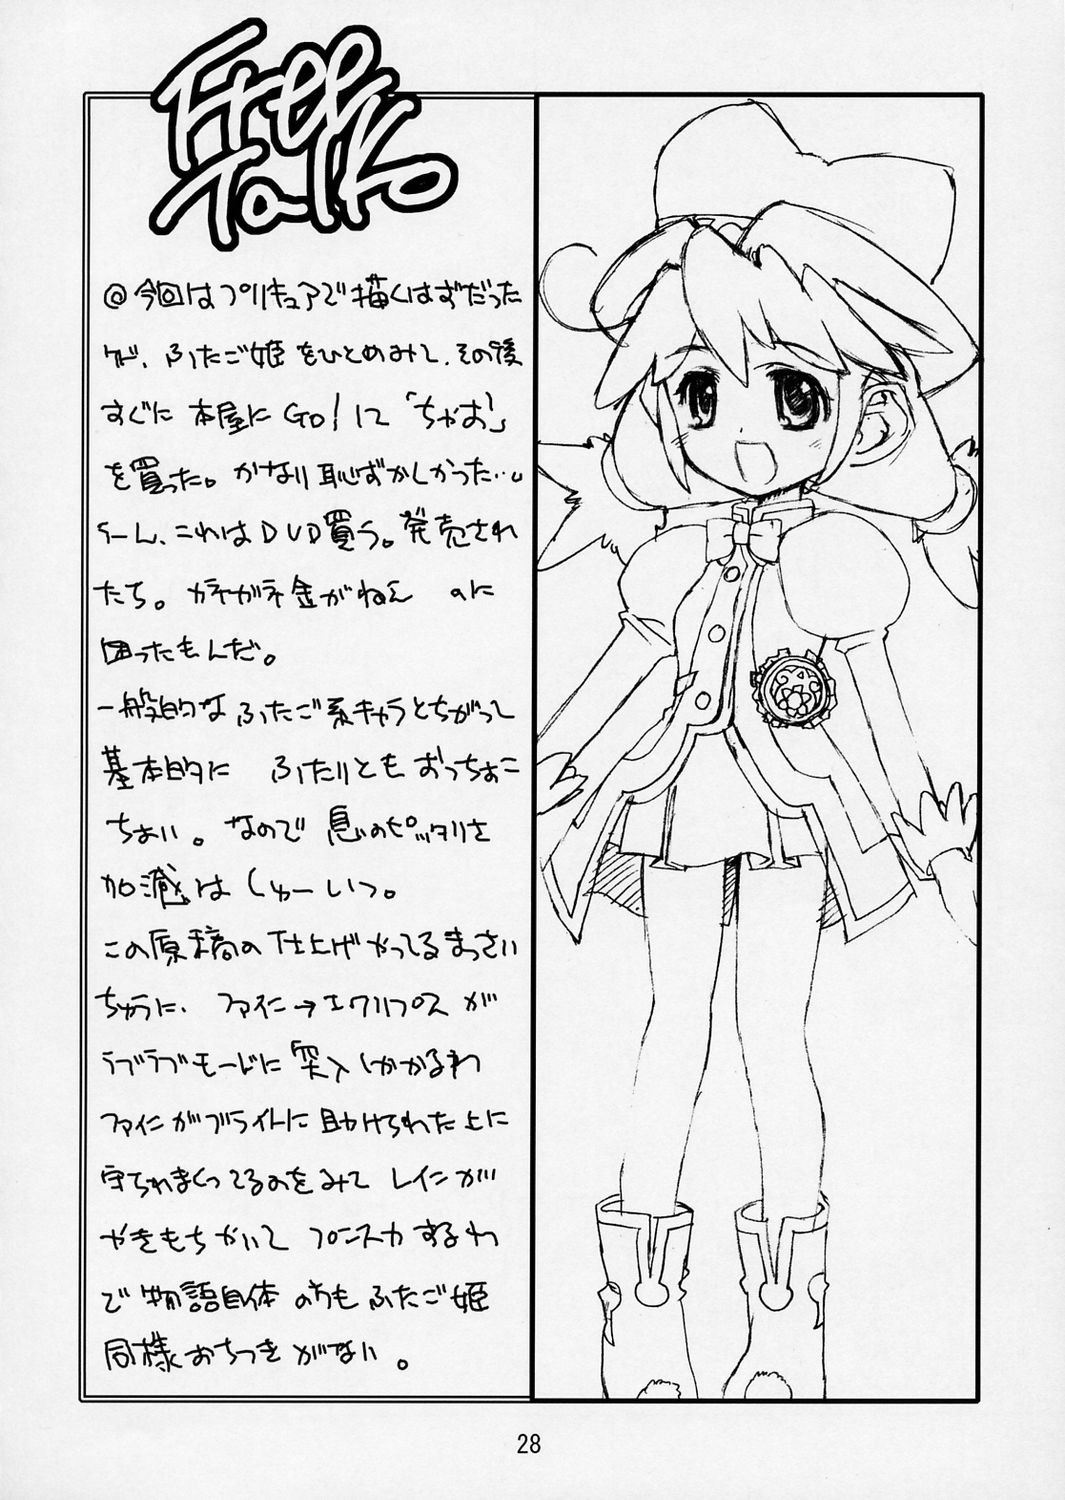 Free
Talk
@今回はプリキュアで描くはずだった
けど、ふたご姫をひとめみて、その後
すぐに本屋にGO!して「ちゃお」
を買った。かなり恥ずかしかった…。
うーん、これはDVD買う。発売され
たち。ガネガネ金がねえ のに
困ったもんだ。
一般的なふたご系キャラとちがって
基本的に ふたりともおっちょこ
ちょい。なので息のピッタリさ
加減はしゅーいつ。
この原稿の仕上げやってるまっさい
ちゅうに、ファイン→エクリプスが
ラブラブモードに突入しかかるわ
ファインがブライトに助けられた上に
守られまくってるのをみてレインが
やきもちやいてプンスカするわ
で物語自体のうもふたご姫
同様おちつきがない。
28